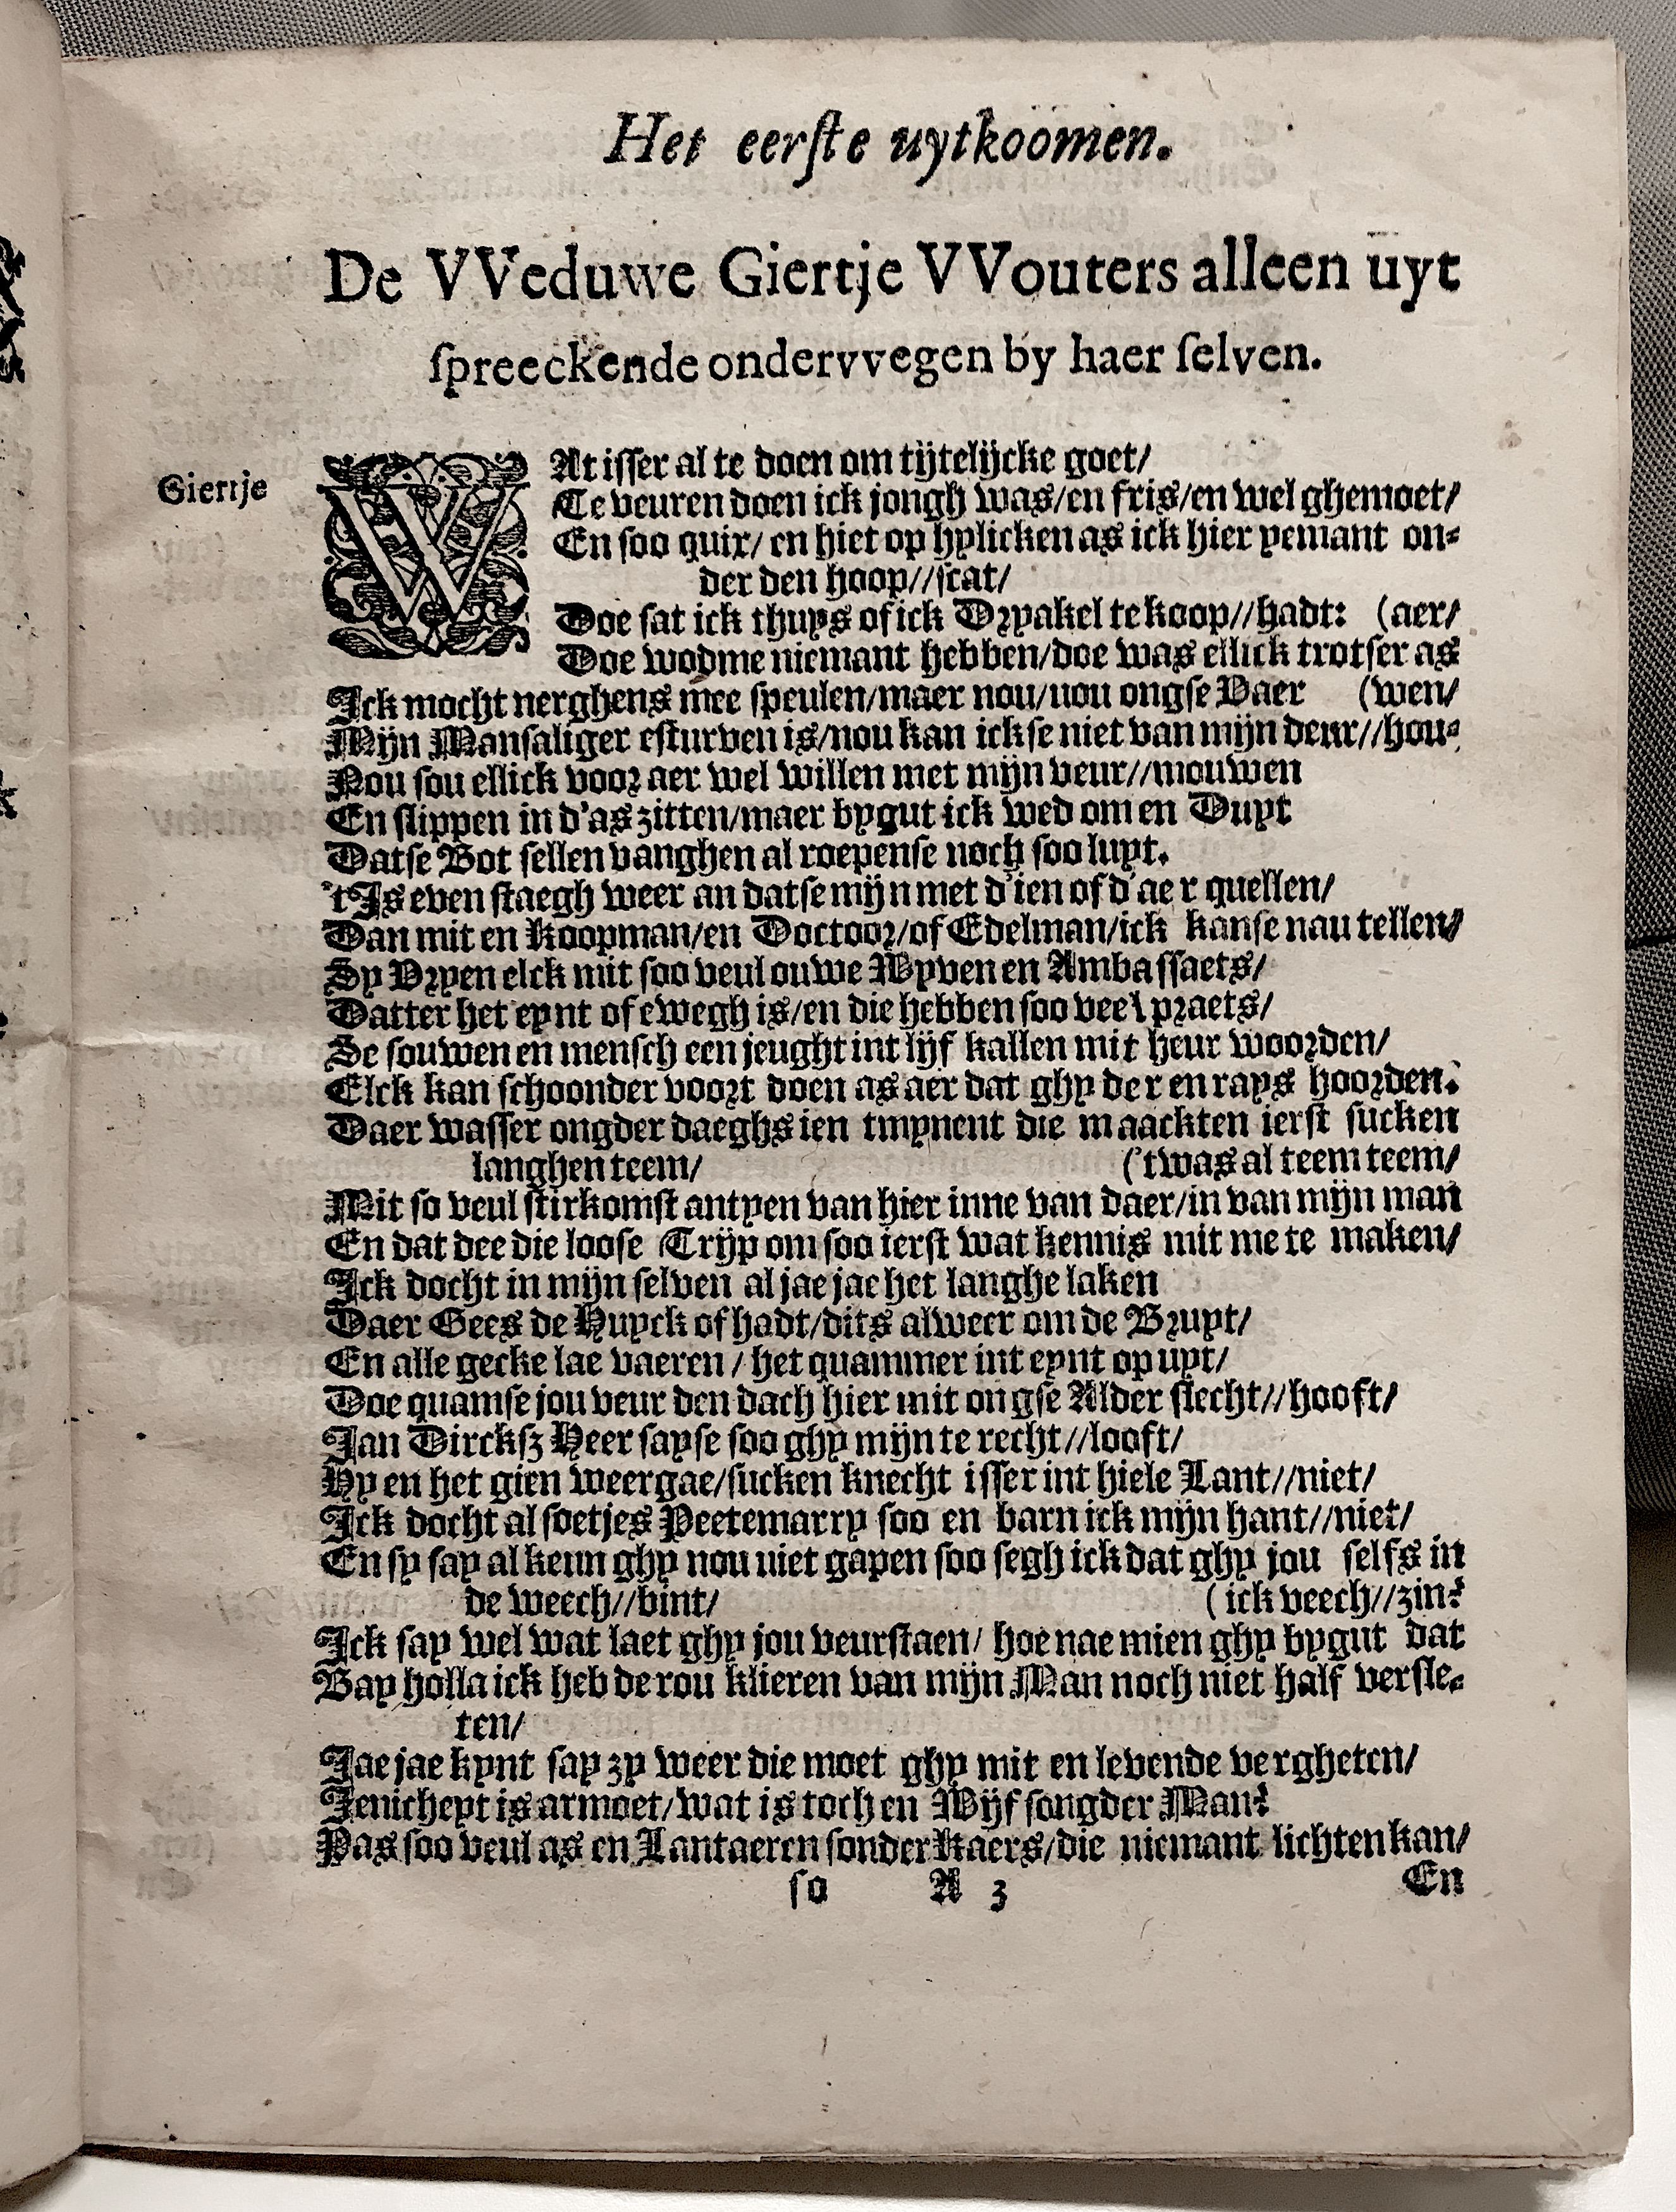 Het eerſte uytkoomen.
De VVeduwe Giertje VVouters alleen uyt
ſpreeckende ondervvegen by haer ſelven.
Giertje
WAt iſſer al te doen om tijtelijcke goet/
Te veuren doen ick jongh was/en fris/en wel ghemoet/
En ſoo quix/ en hiet op hylicken as ick hier yemant on⸗
der den hoop//ſcat/
Doe ſat ick thuys of ick Dryakel te koop//hadt: (aer/
Doe wodme niemant hebben/doe was ellick trotſer as
Ick mocht nerghens mee ſpeulen/maer nou/nou ongſe Vaer (wen/
Mijn Manſaliger eſturven is/nou kan ickſe niet van mijn deur//hou⸗
Nou ſou ellick voor aer wel willen met mijn veur//mouwen
En ſlippen in d'as zitten/maer bygut ick wed om en Duyt
Datſe Bot ſellen vanghen al roepenſe noch ſoo luyt.
'tIs even ſtaegh weer an datſe mijn met d'ien of d'aer quellen/
Dan mit en Koopman/en Doctoor/of Edelman/ick kanſe nau tellen/
Sy Vryen elck mit ſoo veul ouwe Wyven en Ambaſſaets/
Datter het eynt of ewegh is/en die hebben ſoo veel praets/
Se ſouwen en menſch een jeught int lijf kallen mit heur woorden/
Elck kan ſchoonder voort doen as aer dat ghy der en rays hoorden.
Daer waſſer ongder daeghs ien tmynent die maackten ierſt sucken
langhen teem/ ('twas al teem teem/
Mit ſo veul ſtirkomſt antyen van hier inne van daer/in van mijn man
En dat dee die looſe Trijp om ſoo ierſt wat kennis mit me te maken/
Ick docht in mijn ſelven al jae jae het langhe laken
Daer Gees de Huyck of hadt/dits alweer om de Bruyt/
En alle gecke lae vaeren / het quammer int eynt op uyt/
Doe quamſe jou veur den dach hier mit ongſe Alder ſlecht//hooft/
Jan Dirckſz Heer ſayſe ſoo ghy mijn te recht//looft/
Hy en het gien weergae/ſucken knecht iſſer int hiele Lant//niet/
Ick docht al ſoetjes Peetemarry ſoo en barn ick mijn hant//niet/
En ſy ſay al kenn ghy nou niet gapen ſoo ſegh ick dat ghy jou ſelfs in
de weech//vint/ ( ick veech//zin?
Ick ſay wel wat laet ghy jou veurſtaen/ hoe nae mien ghy bygut dat
Bay holla ick heb de rou klieren van mijn Man noch niet half verſle⸗
ten/
Jae jae kynt ſay zy weer die moet ghy mit en levende vergheten/
Ienicheyt is armoet/wat is toch en Wijf ſongder Man?
Pas ſoo veul as en Lantaeren ſonder Kaers/die niemant lichten kan/
ſo A 3 En